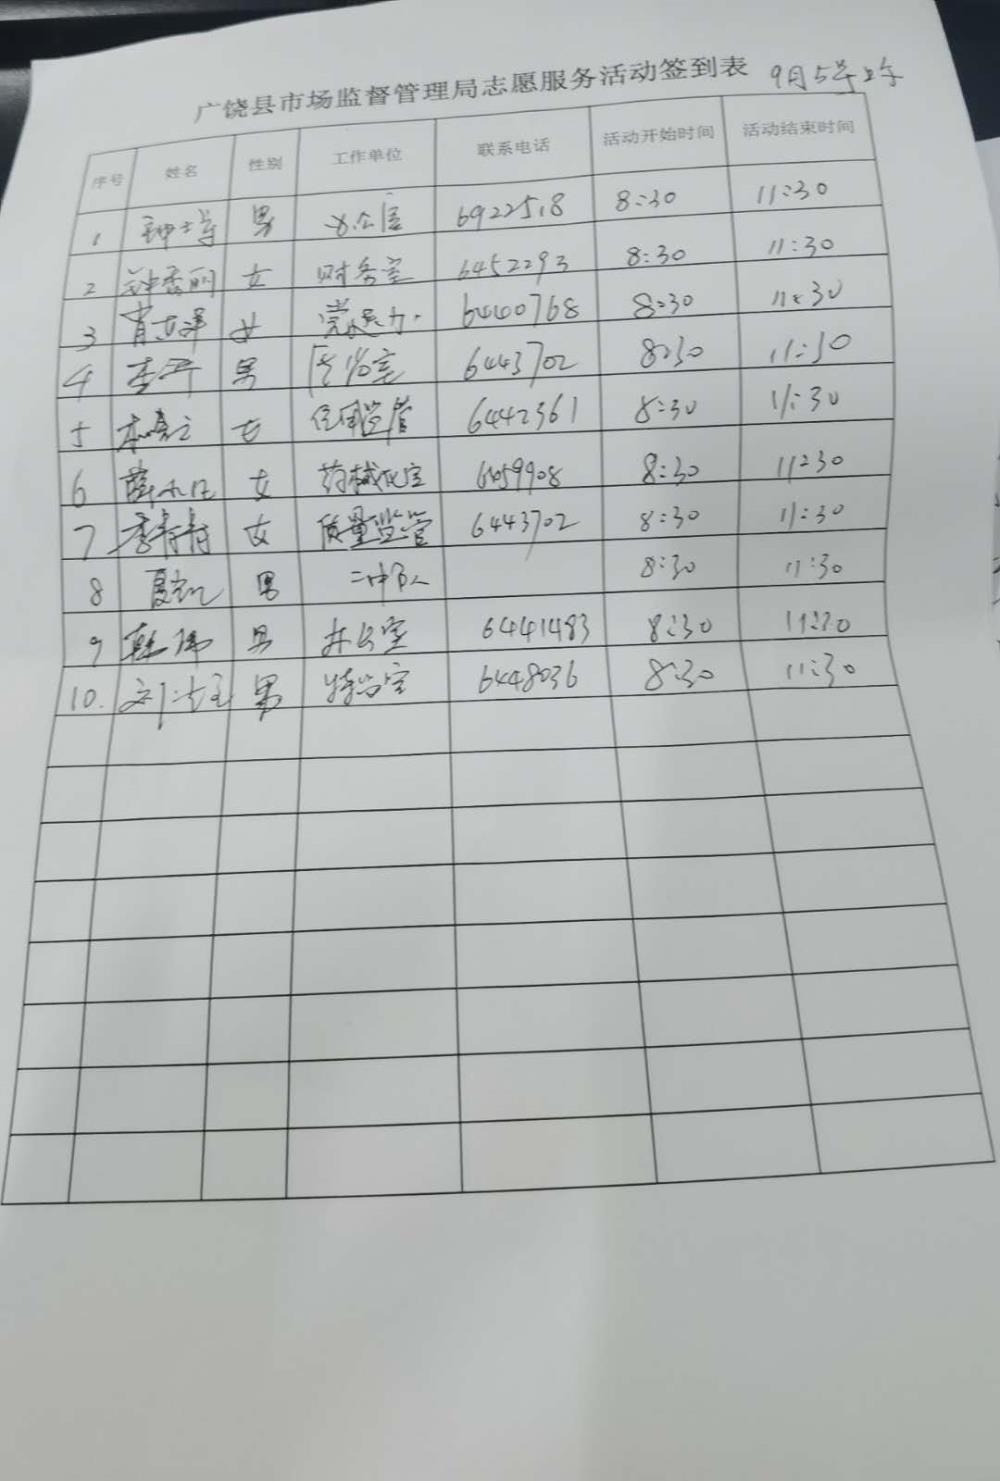 广饶县市场监督管理局志愿服务活动签到表 9月5号上午
序号 姓名 性别 工作单位 联系电话 活动开始时间 活动结束时间
1 男 办公室 6922518 8:30 11:30
2 钟秀丽 女 财务室 6452293 8:30 11:30
3 女 6440768 8:30 11:30
4 男 6443702 8:30 11:30
5 女 信用监管 6442361 8:30 11:30
6 薛 女 药械化室 8:30 11:30
7 李青青 女 质量监管 6443702 8:30 11:30
8 夏 男 二中队 8:30 11:30
9 韩伟 男 办公室 6441483 8:30
10. 刘 男 特监室 6448036 8:30 11:30